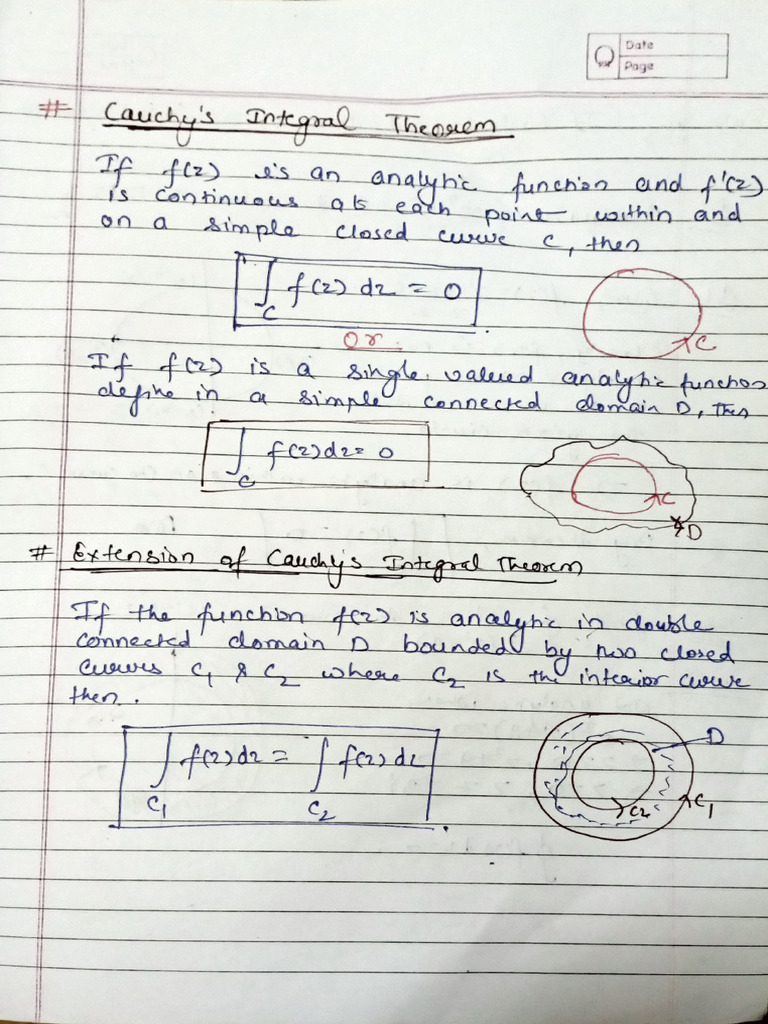 Date
Page
# Cauchy's Integral Theorem
If f(z) is an analytic function and f'(z)
is continuous at each point within and
on a simple closed curve C, then
∫_C f(z) dz = 0
C
Or
If f(z) is a single valued analytic function
define in a simple connected domain D, then
∫_C f(z) dz = 0
C
D
# Extension of Cauchy's Integral Theorem
If the function f(z) is analytic in double
connected domain D bounded by two closed
curves C₁ & C₂ where C₂ is the interior curve
then.
∫_C₁ f(z) dz = ∫_C₂ f(z) dz
D
C₂
C₁